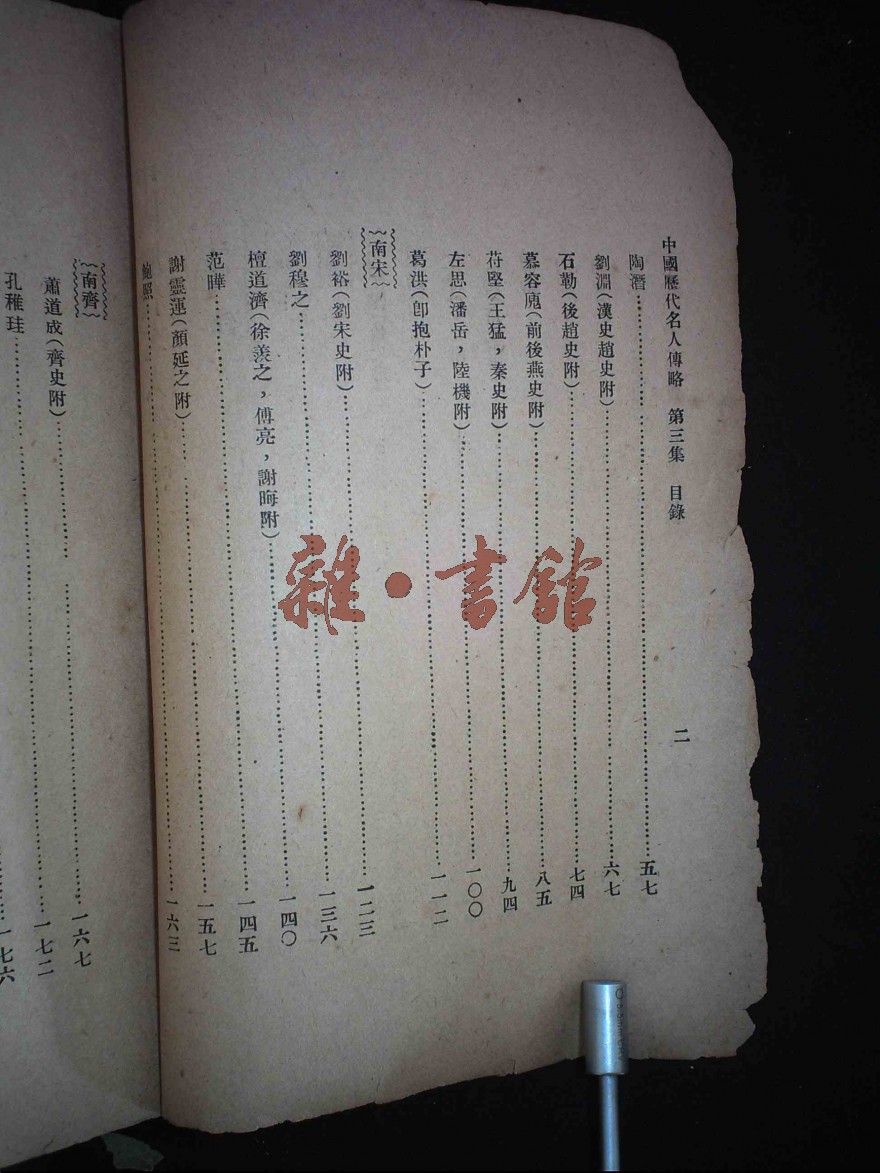 中國歷代名人傳略 第三集 目錄 二
陶潛……五七
劉淵(漢史趙史附)……六七
石勒(後趙史附)……七四
慕容廆(前後燕史附)……八五
苻堅(王猛，秦史附)……九四
左思(潘岳，陸機附)……一〇〇
葛洪(卽抱朴子)……一一二
南宋
劉裕(劉宋史附)……一二三
劉穆之……一三六
檀道濟(徐羨之，傅亮，謝晦附)……一四〇
范曄……一四五
謝靈運(顏延之附)……一五七
鮑照……一六三
南齊
蕭道成(齊史附)……一六七
孔稚珪……一七二
……一七六
雜·書館